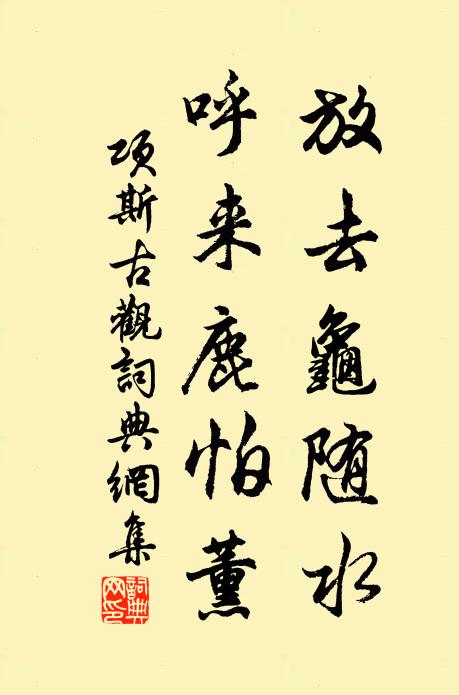 放去龜随水
呼来鹿怕薰
项斯古觀詞典網集
詞典網印